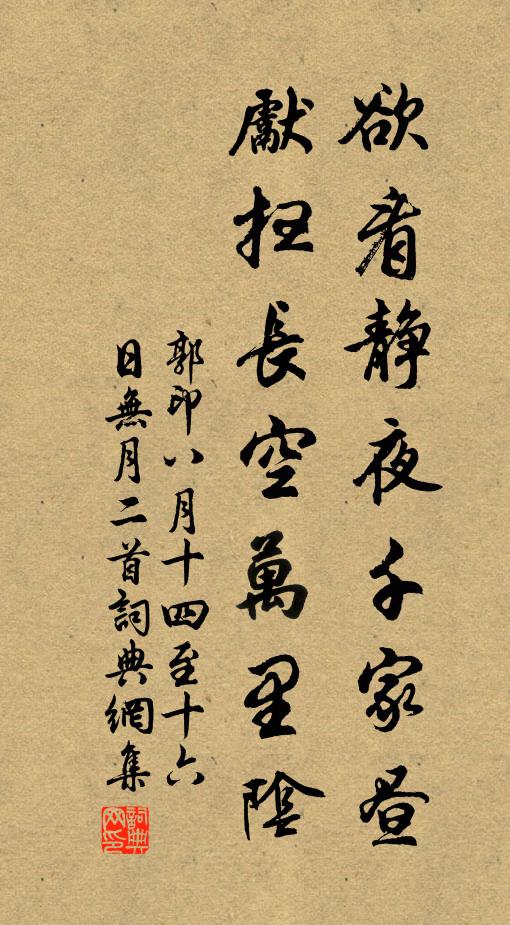 欲看靜夜千家晝
獻長空萬里陰
郭印八月十四至十六
日無月二首詞典網集
詞典網印